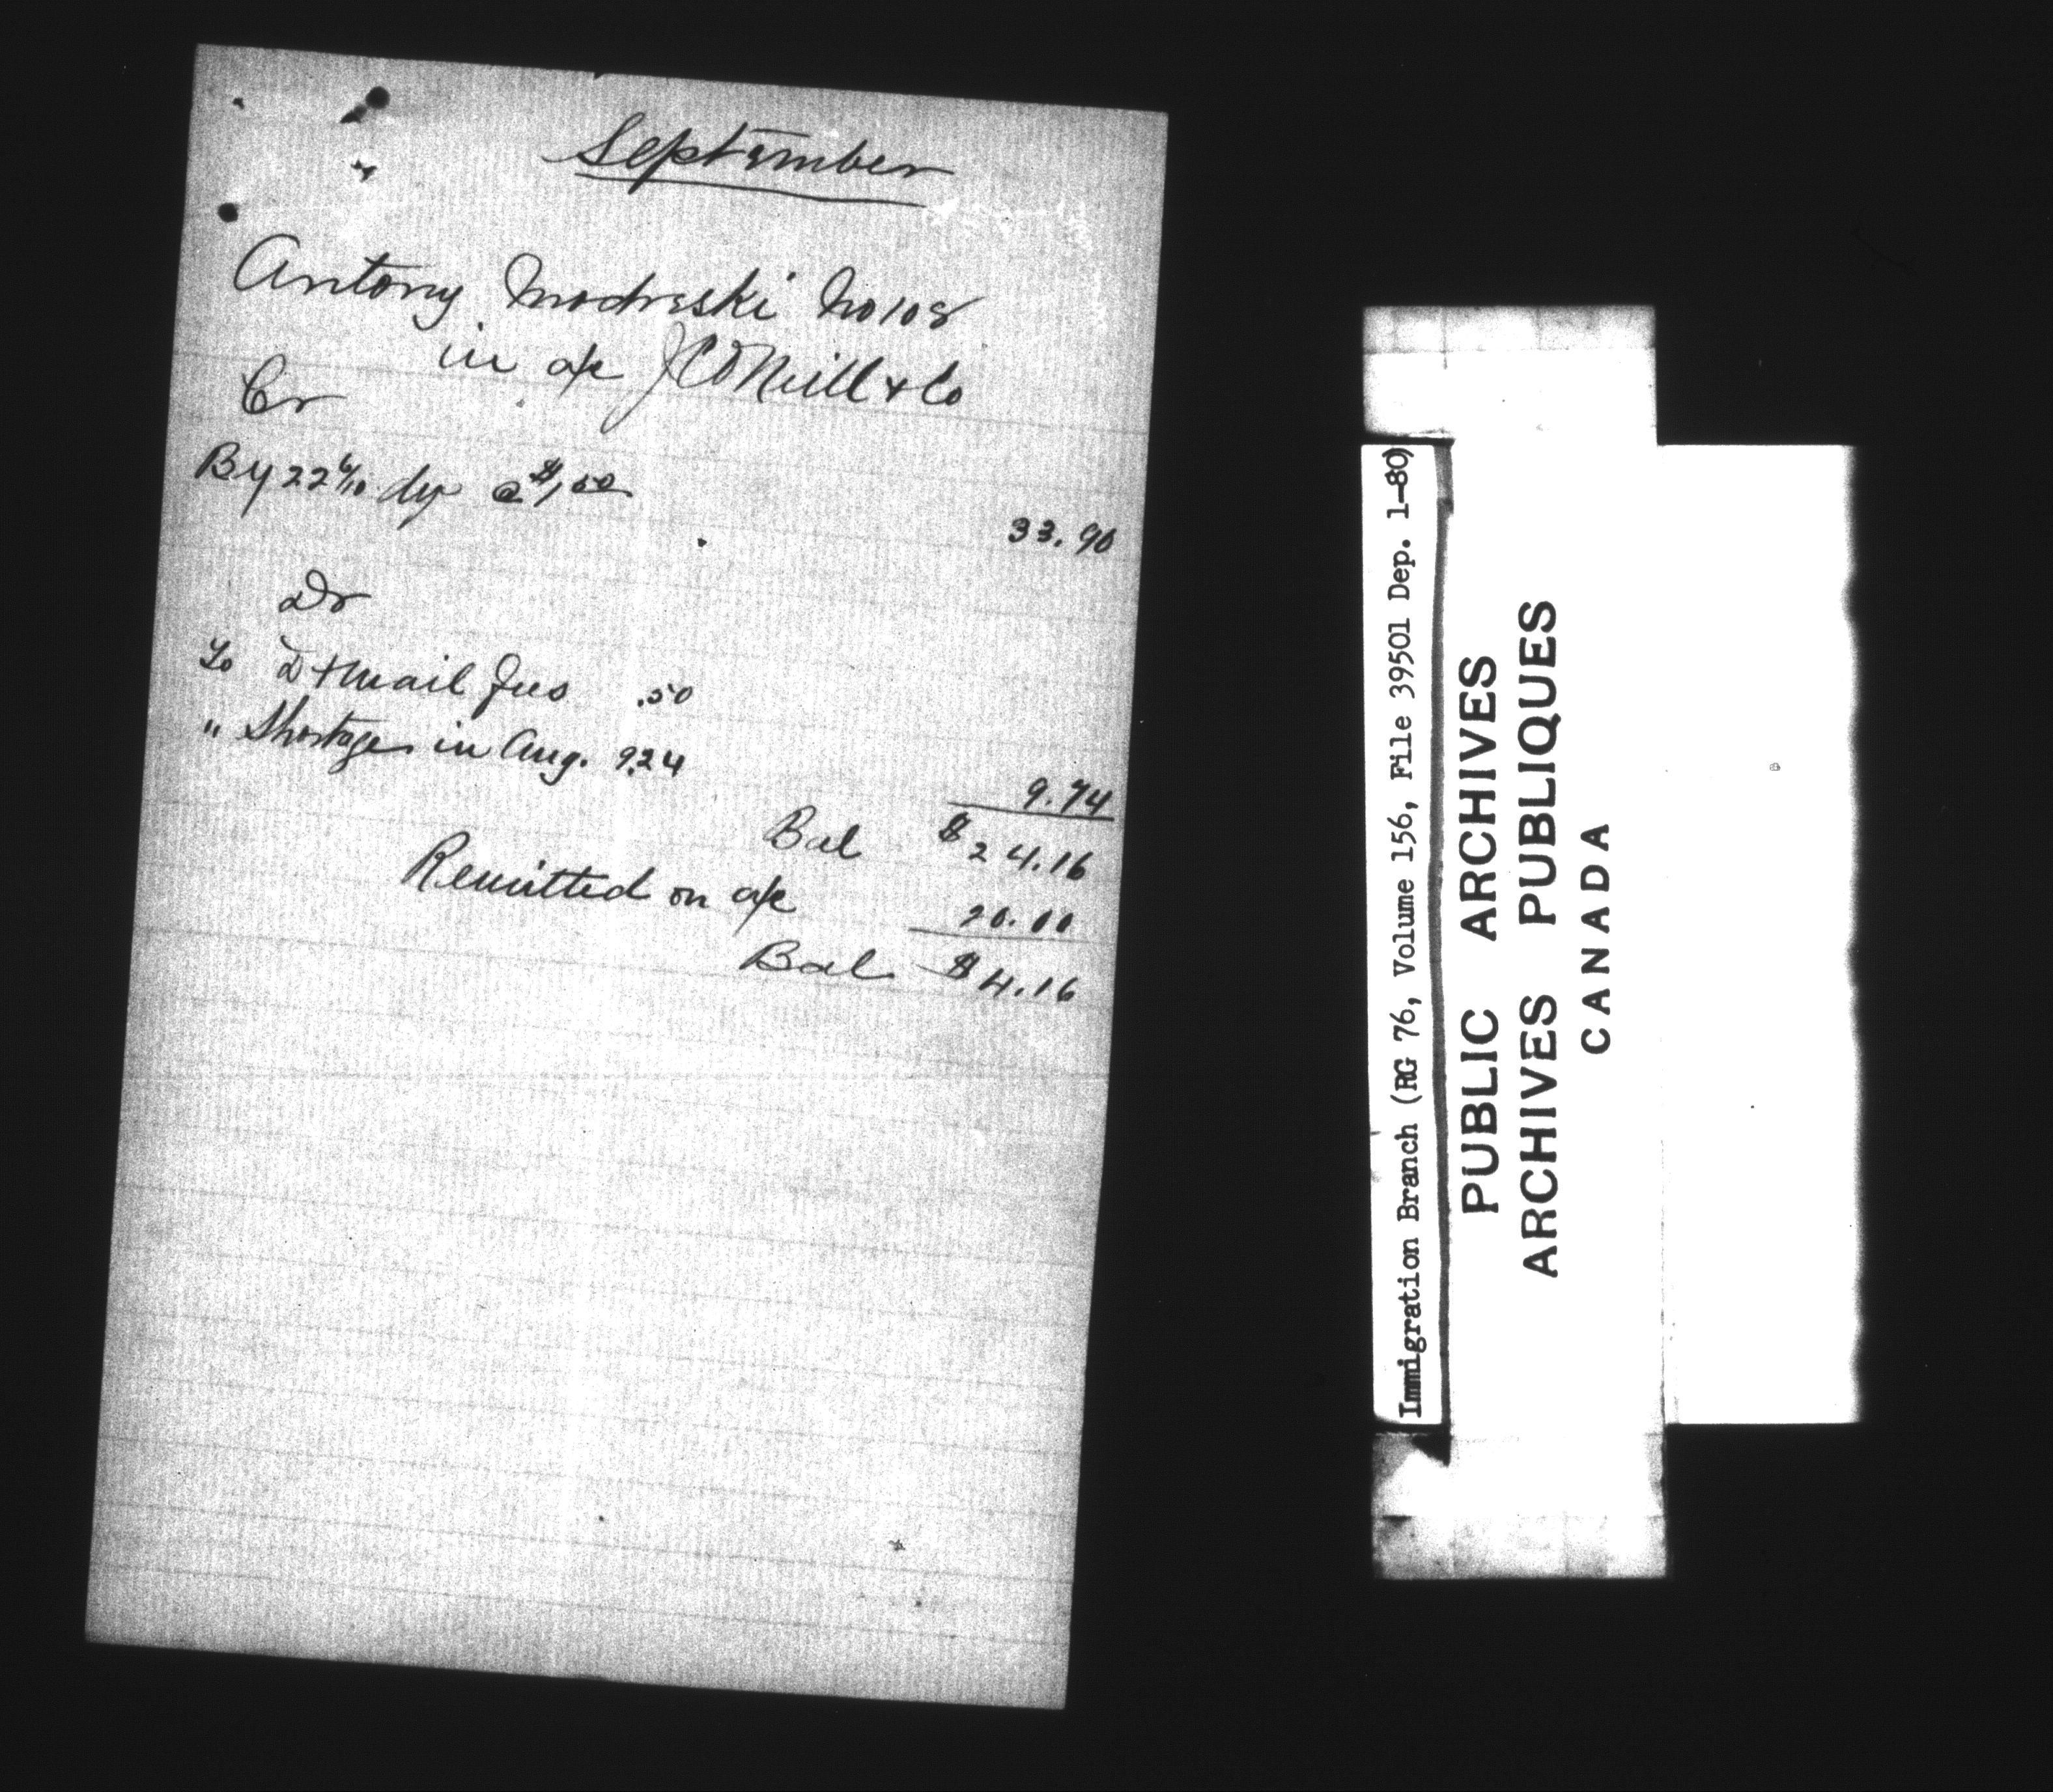 September
Antony Modreski No 108
in a/c J C O'Neill & Co
Cr
By 22 6/10 dys @ $1.50
33.90
Dr
To Dr + Mail Fees .50
" Shortage in Aug. 9.24
9.74
Bal $24.16
Remitted on a/c 20.00
Bal $4.16
Immigration Branch (RG 76, Volume 156, File 39501 Dep. 1-80)
PUBLIC ARCHIVES
ARCHIVES PUBLIQUES
CANADA